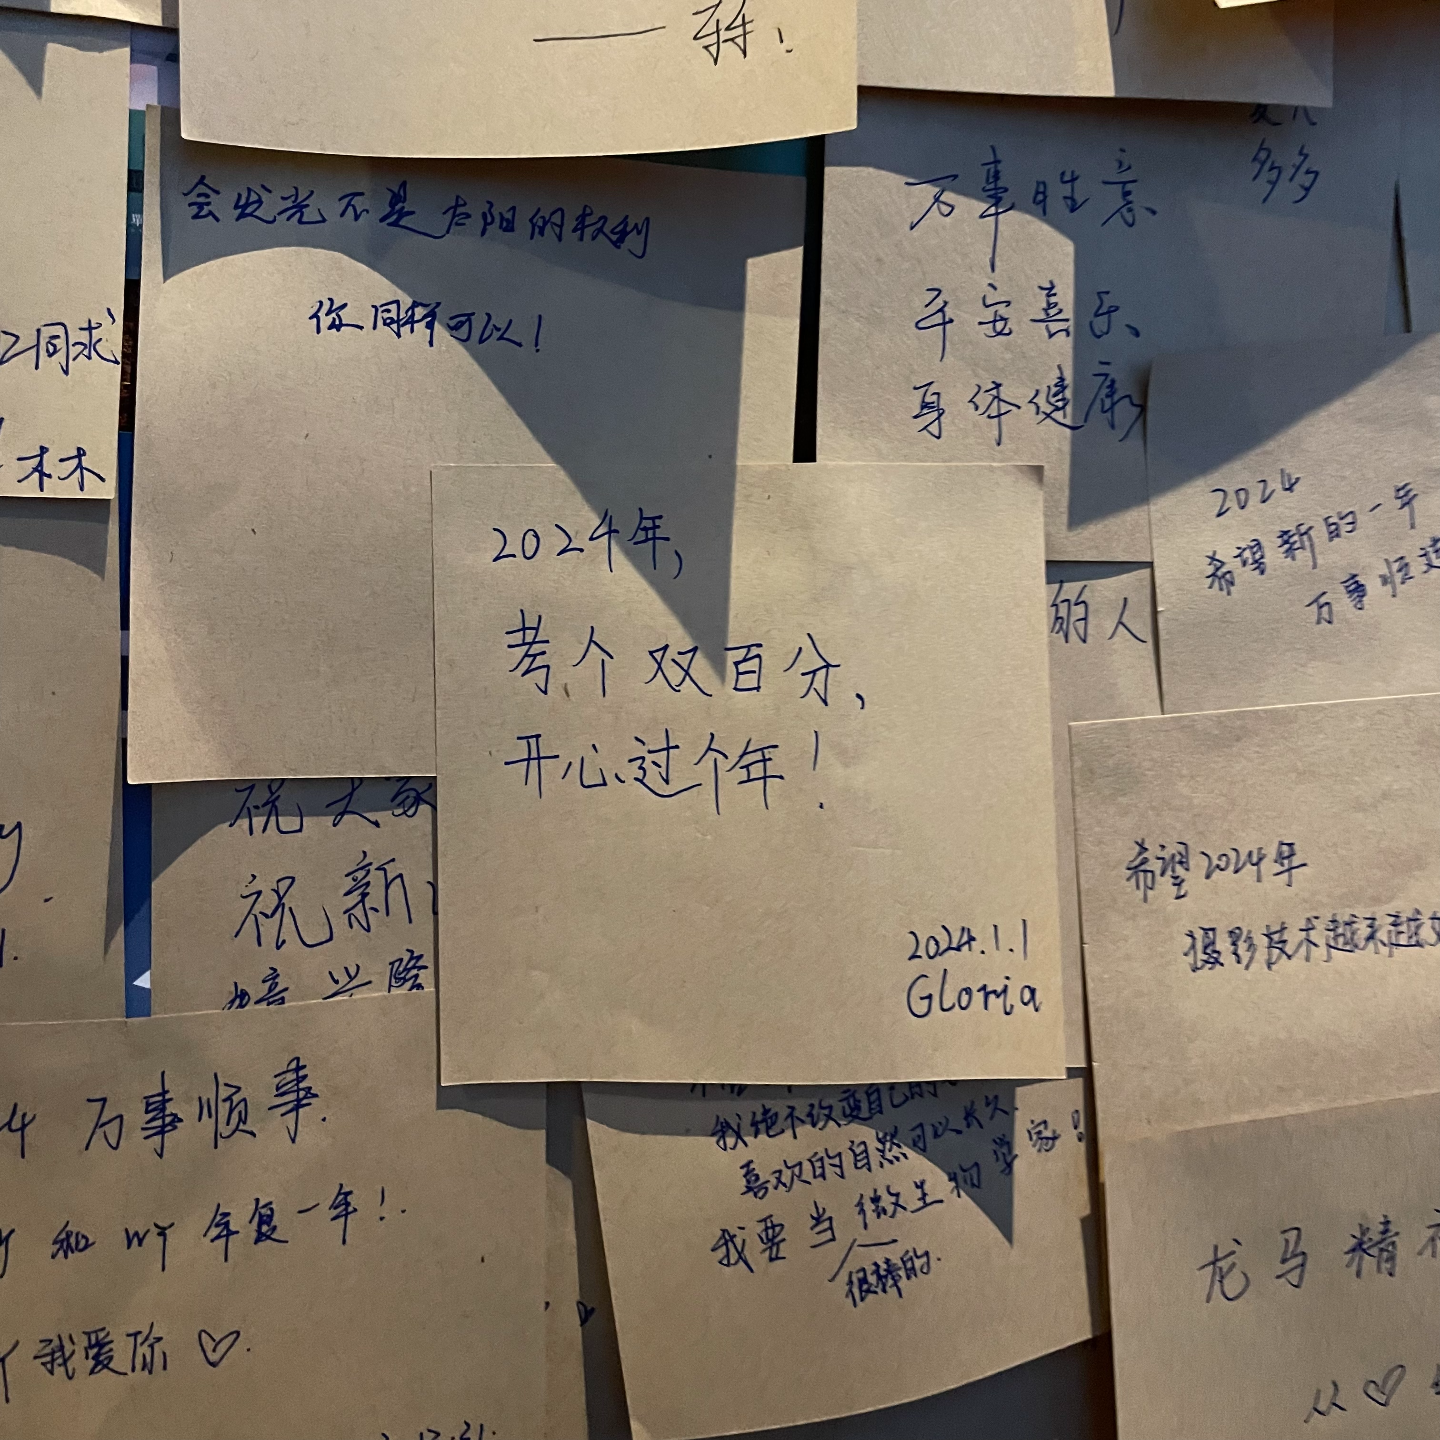 会发光不是太阳的权利
你同样可以!
同求
木木
多多
万事胜意
平安喜乐
身体健康
2024
希望新的一年
万事顺遂
的人
2024年,
考个双百分,
开心过个年!
2024.1.1
Gloria
祝大家
祝新
兴隆
希望2024年
摄影技术越来越
4 万事顺事.
和 WY 年复一年!.
我爱你♡.
12.31.
我绝不改变自己的
喜欢的自然可以长久.
我要当微生物学家!
很棒的.
龙马精
从♡